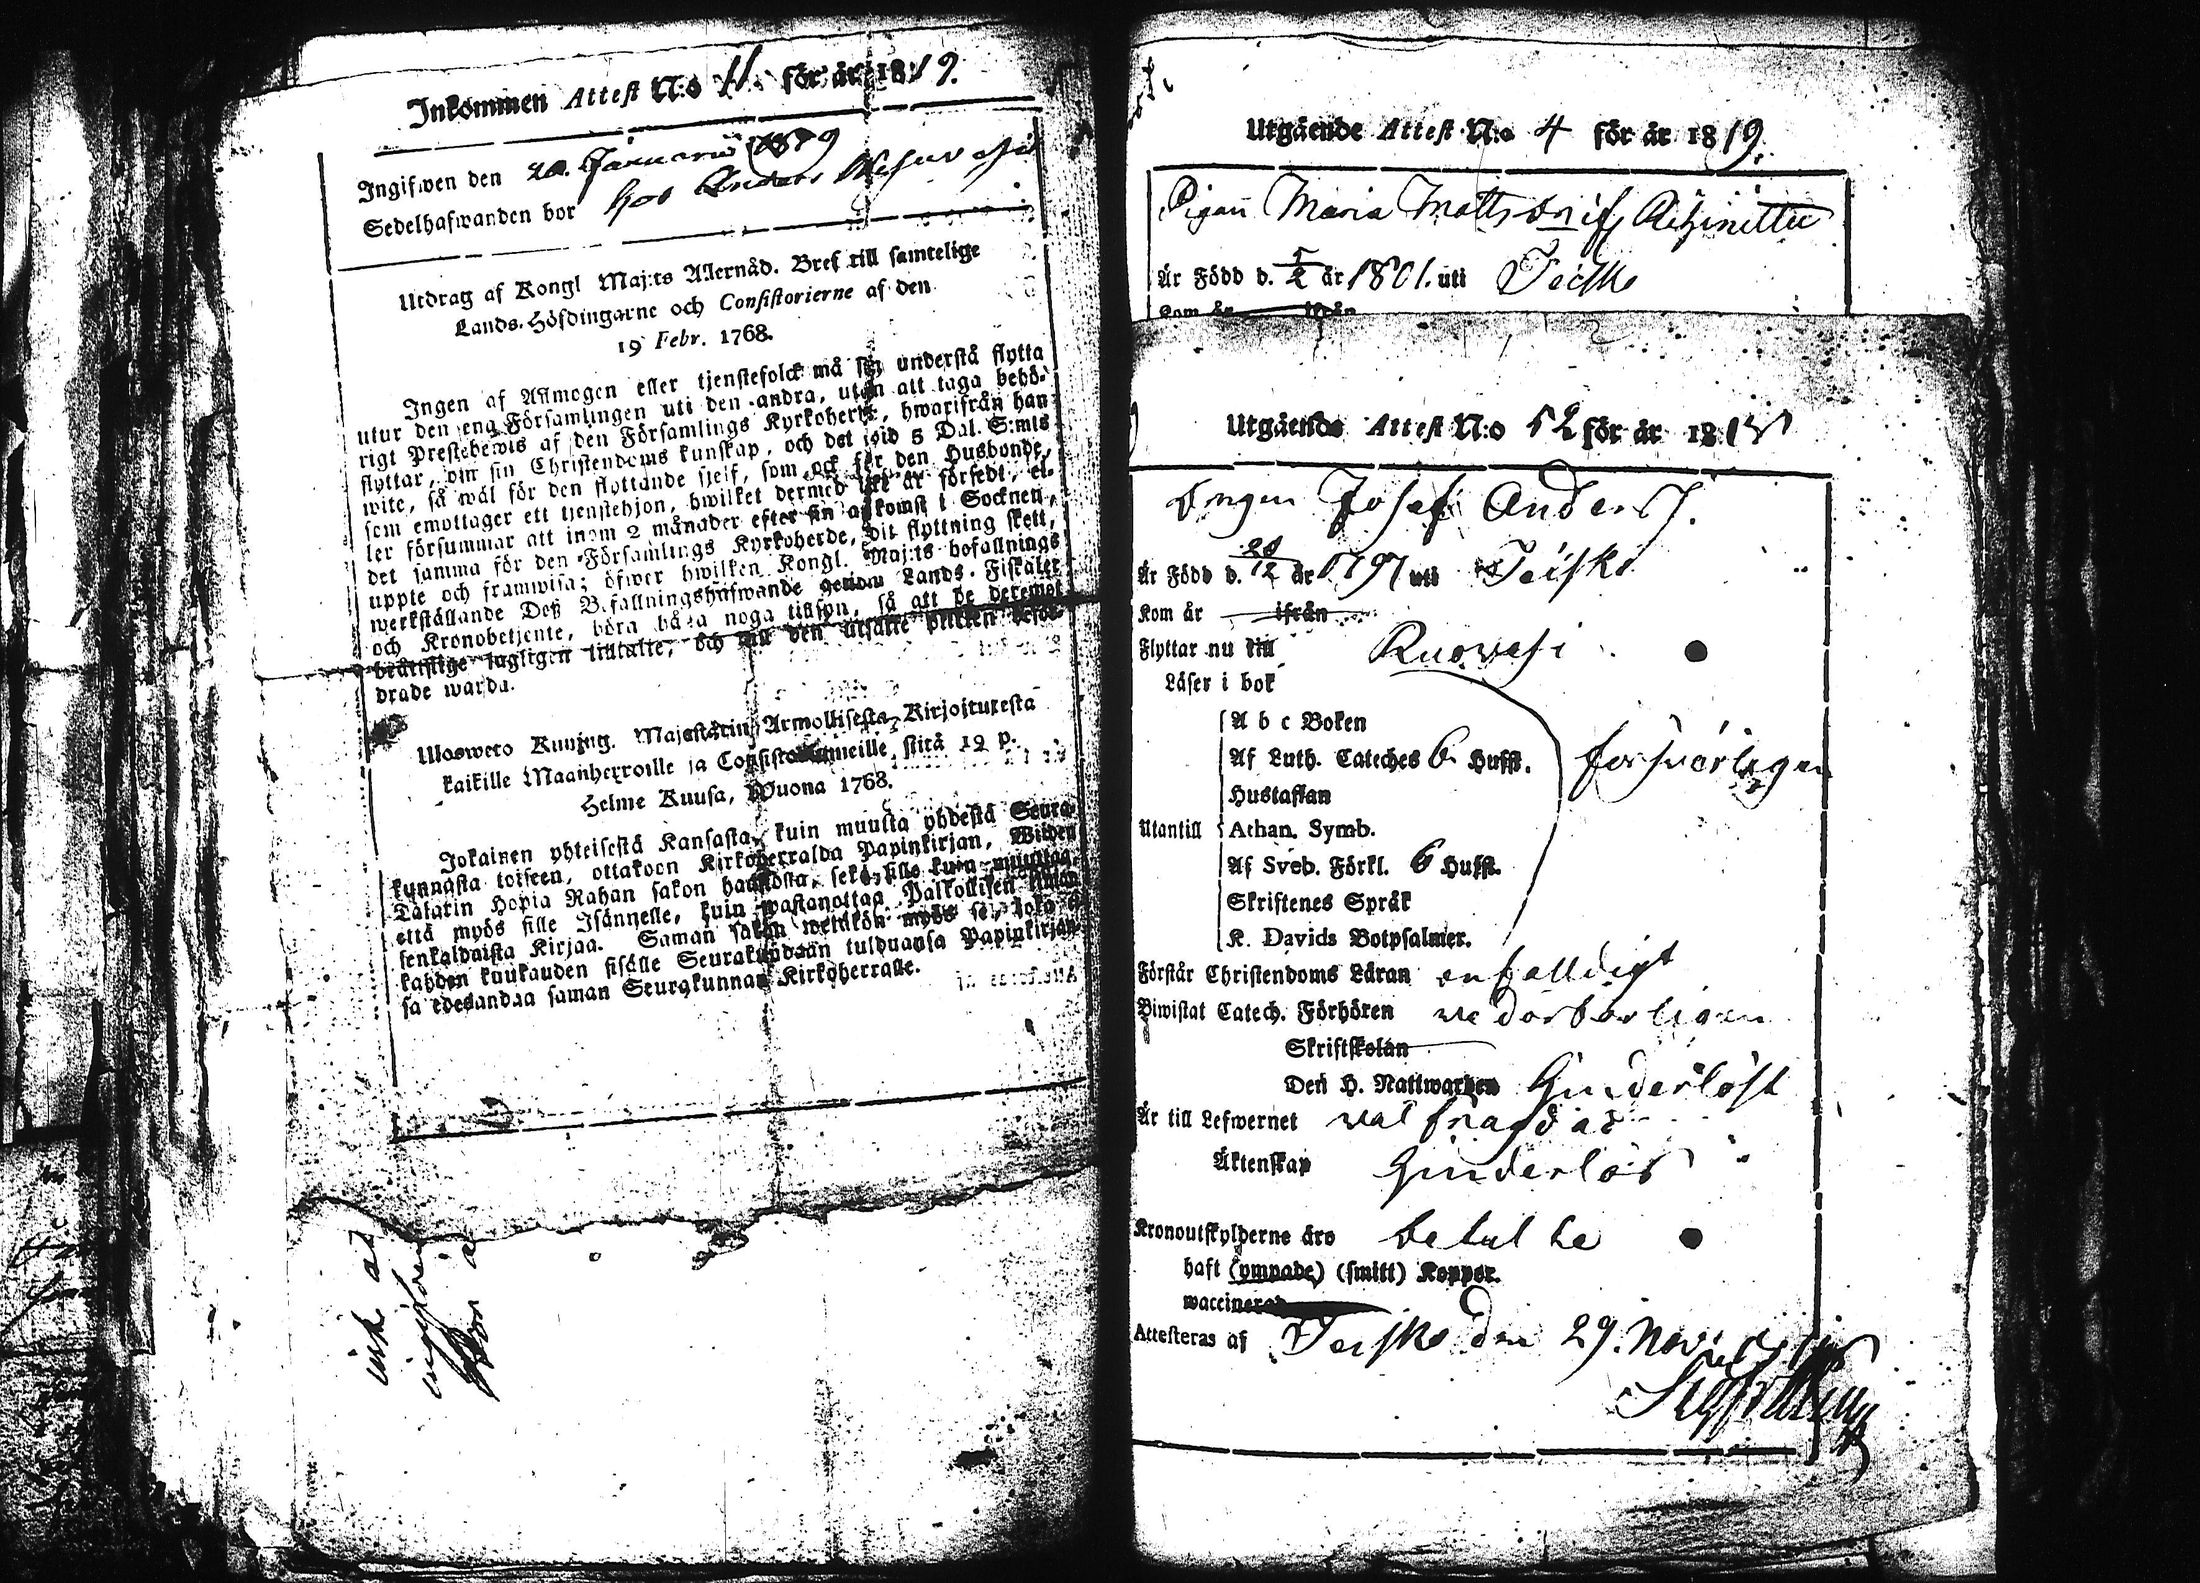 Inkommen Attest N:o 11. för år 1819.
Ingifwen den 20. Januarii 1819
Sedelhafwanden bor hos Anders
Utdrag af Kongl Maj:ts Allernåd. Bref till samtelige
Lands-Höfdingarne och Consistorierne af den
19 Febr. 1768.
Ingen af Allmogen eller tjenstefolck må sig understå flytta
utur den ena Församlingen uti den andra, utan att taga behö-
rigt Prestebewis af den Församlings Kyrkoherde, hwarifrån han
flyttar, om sin Christendoms kunskap, och det wid 5 Dal. S:mts
wite, så wäl för den flyttande sjelf, som ock för den Husbonde,
som emottager ett tjenstehjon, hwilket dermed icke är försedt, el-
ler försummar att inom 2 månader efter sin ankomst i Socknen,
det samma för den Församlings Kyrkoherde, dit flyttning skett,
uppte och framwisa; öfwer hwilken Kongl. Maj:ts befallnings
werkställande Deß Befallningshafwande genom Lands-Fiskaler
och Kronobetjente, böra bära noga tillsyn, så att de deremot
brättslige lagligen tilltalte, och till den utsatte plickten befor-
drade warda.
Ulosweto Kuning. Majestätin Armollisesta Kirjoituxesta
kaikille Maanherroille ja Consistoriumeille, siitä 19 p.
Helme Kuusa, Wuona 1768.
Jokainen yhteisestä Kansasta, kuin muutta yhdestä Seura-
kunnasta toiseen, ottakoon Kirkoherralda Papinkirjan, Wiiden
Talarin Hopia Rahan sakon haastosta, sekä sille kuin muuttaa,
että myös sille Isännelle, kuin wastanottaa Palkollisen ilman
senkaldaista Kirjaa. Saman sakon wetäkön myös se, joka ei
kahden kuukauden sisälle Seurakundaan tulduansa Papinkirjan-
sa edesandaa saman Seurakunnan Kirkoherralle.
Utgående Attest N:o 4 för år 1819.
Pigan Maria Mattsdr
Är Född d. 5/2 år 1801. uti Teisko
Kom år ifrån
Utgående Attest N:o 52 för år 181
Drngen Josef Anders.
Är Född d. 20/12 år 1797 uti Teisko
Kom år ifrån
Flyttar nu till Ruovesi
Läser i bok
A b c Boken
Af Luth. Cateches 6 Hufst. försvarligen
Hustaflan
Utantill Athan. Symb.
Af Sveb. Förkl. 6 Hufst.
Skriftenes Språk
K. Davids Botpsalmer.
Förstår Christendoms Läran enfalldigt
Biwistat Catech. Förhören vederbörligen
Skriftskolan
Den H. Nattwarden hinderlöst
Är till Lefwernet väl frägdad
Äktenskap hinderlös
Kronoutskylderne äro betalte
haft (ympade) (smitt) Koppor.
waccinerad
Attesteras af Teisko den 29. Nov: